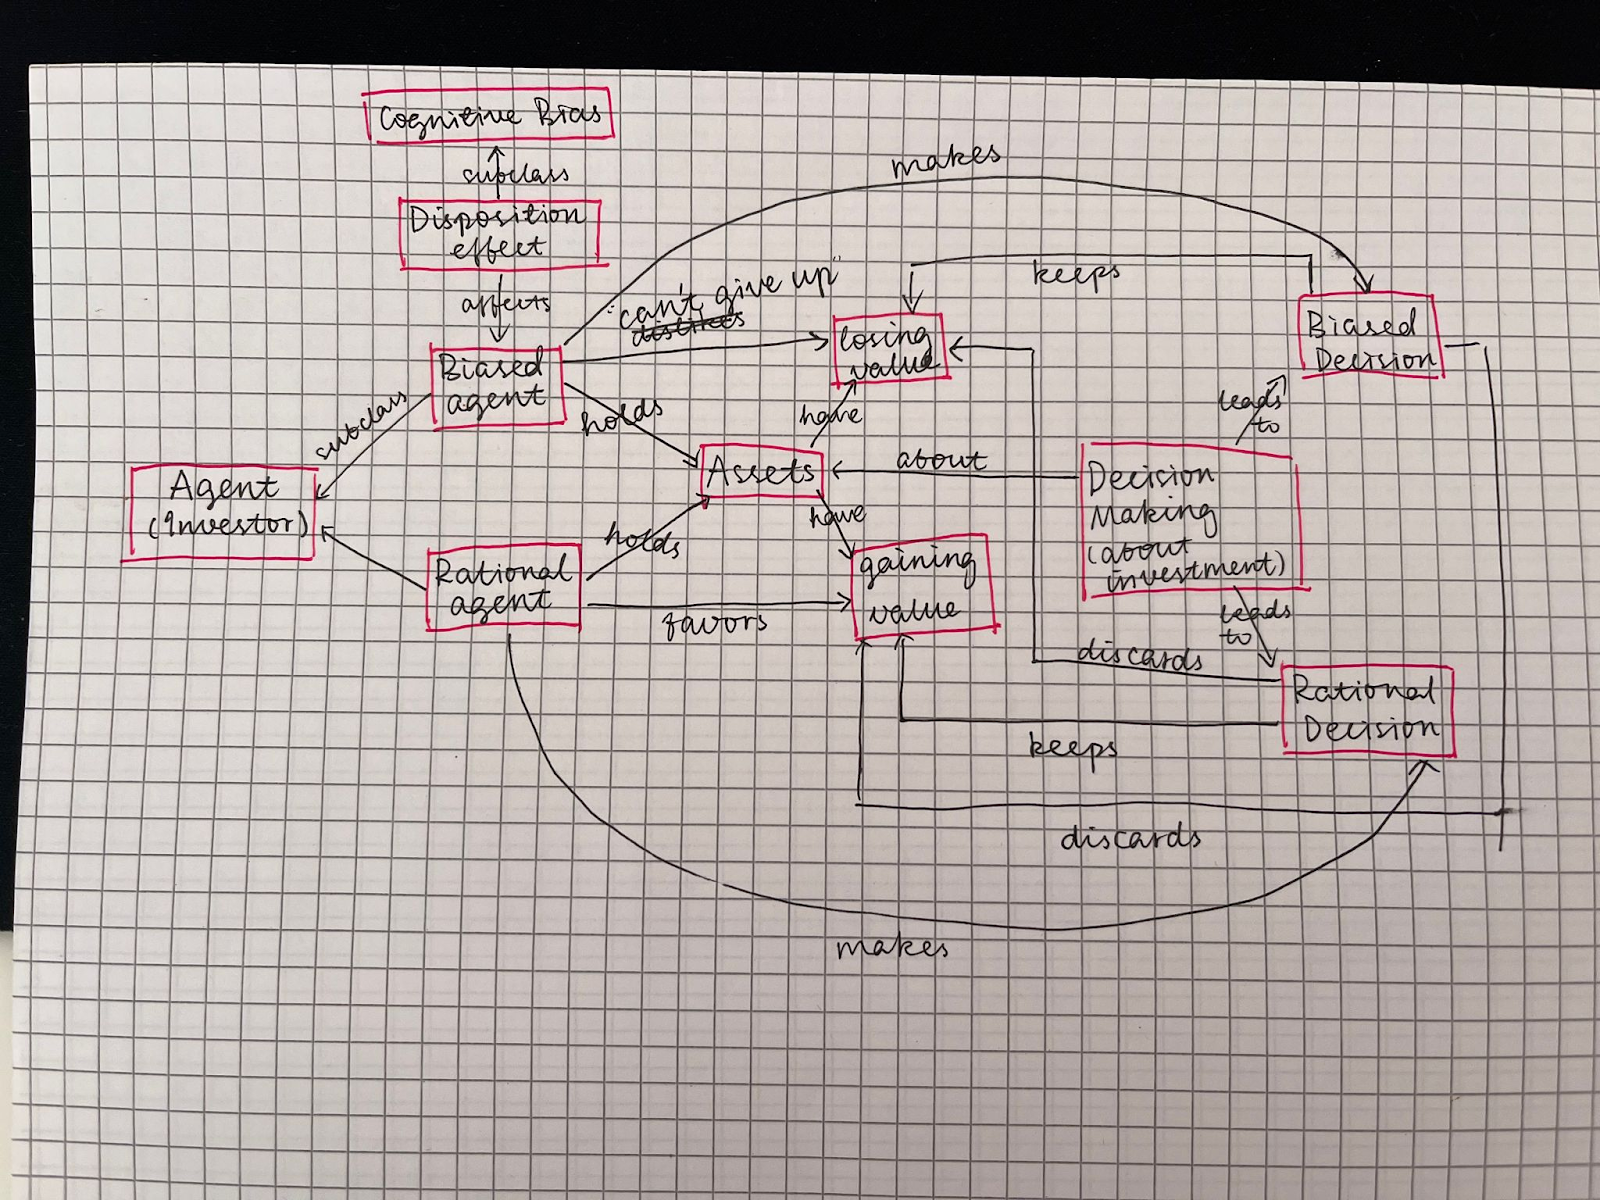 Cognitive Bias
subclass
Disposition
effect
affects
makes
"can't give up"
dislikes
keeps
losing
value
Biased
Decision
Biased
agent
subclass
holds
have
leads
to
Agent
(Investor)
Assets
about
Decision
Making
(about
investment)
have
holds
Rational
agent
favors
gaining
value
leads
to
discards
Rational
Decision
keeps
discards
makes